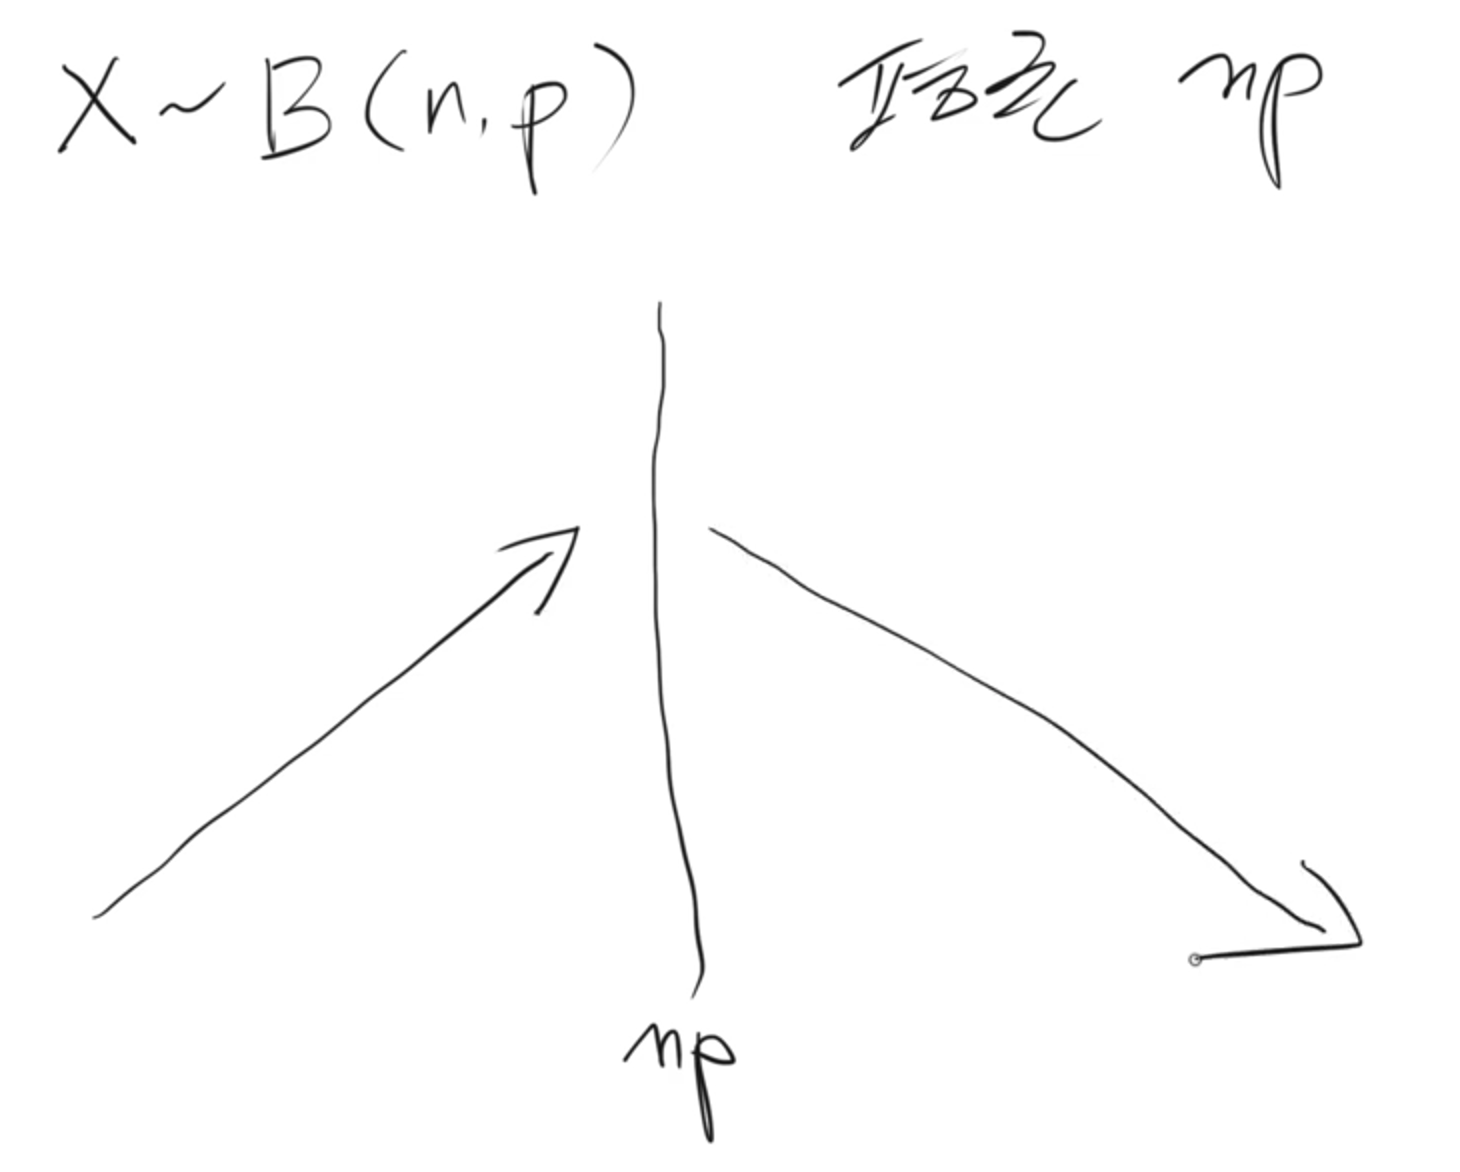 X~B(n,p) 평균 np
np